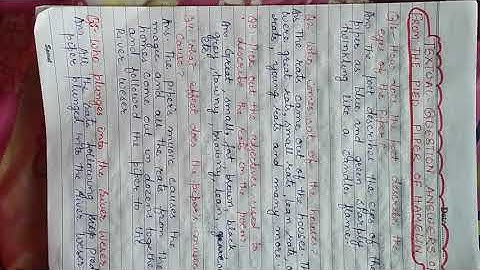 Date
TEXTUAL QUESTION ANSWERS OF
FROM THE PIED PIPER OF HAMELIN
Q1:- How does the poet describe the
eyes of the piper?
Ans The poet describe the eyes of the
piper as blue and green sharply
twinkling like a candle flame.
Q2 Who came out of the houses?
As The rats came out of the houses. The
were great rats, small rats, lean rats,
rats, young rats and many more
Q3 Pick out the adjectives used to
describe the rats in the poem
Ans Great, small, fat brown, black,
grey tawny brawny lean,
etc
Q4 What effect does the piper's music
cause?
Ans The piper's music causes the
magic and all the rats from the
houses come out in dozens together
and followed the piper to the
River Weser
Q5 Who plunges into the River Weser
Ans All the rats following pied
piper plunged into the River Weser